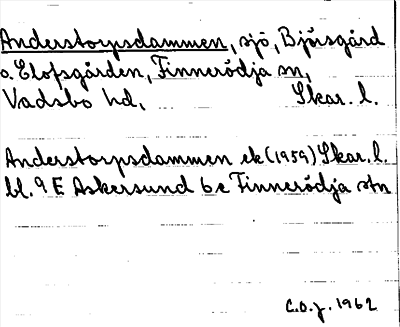 Anderstorpsdammen, sjö, Bjÿrsgård
o. Elofsgården, Finnerödja sn,
Vadsbo hd, Skar. l.
Anderstorpsdammen ek (1959) Skar. l.
bl. 9 E Askersund 6 e Finnerödja stn
C.O.J. 1962